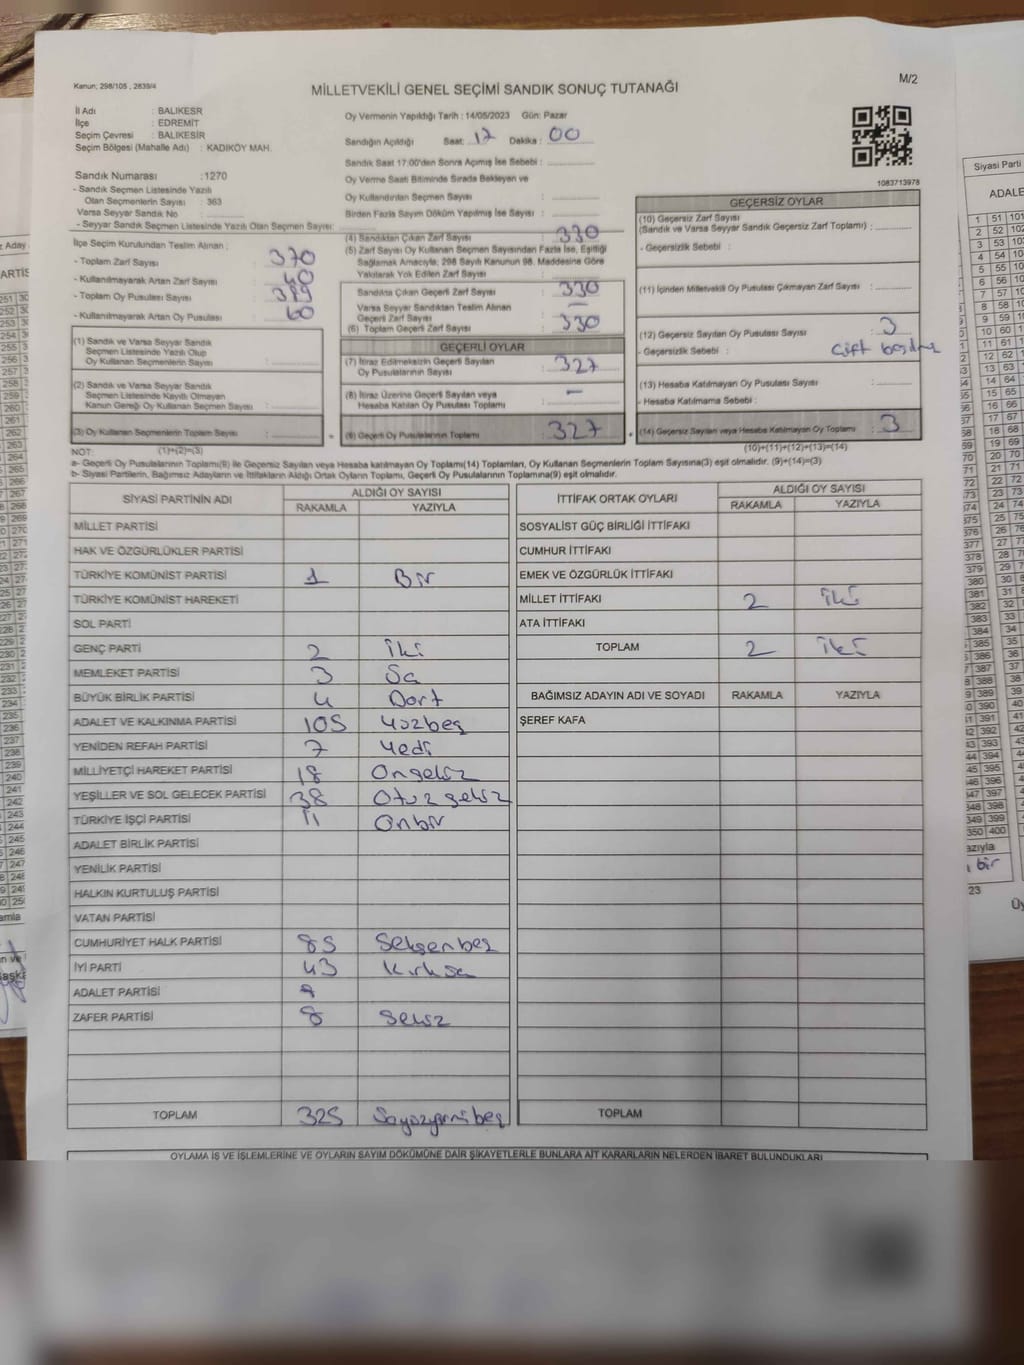 Kanun; 298/105 , 2839/4
MİLLETVEKİLİ GENEL SEÇİMİ SANDIK SONUÇ TUTANAĞI
M/2
İl Adı : BALIKESR
İlçe : EDREMİT
Seçim Çevresi : BALIKESİR
Seçim Bölgesi (Mahalle Adı) : KADIKÖY MAH.
Sandık Numarası : 1270
- Sandık Seçmen Listesinde Yazılı
Olan Seçmenlerin Sayısı : 363
Varsa Seyyar Sandık No :
- Seyyar Sandık Seçmen Listesinde Yazılı Olan Seçmen Sayısı:
Oy Vermenin Yapıldığı Tarih : 14/05/2023 Gün: Pazar
Sandığın Açıldığı Saat: 17 Dakika : 00
Sandık Saat 17:00'den Sonra Açımış İse Sebebi :
Oy Verme Saati Bitiminde Sırada Bekleyen ve
Oy Kullandırılan Seçmen Sayısı :
Birden Fazla Sayım Döküm Yapılmış İse Sayısı :
1083713978
İlçe Seçim Kurulundan Teslim Alınan :
- Toplam Zarf Sayısı : 370
- Kullanılmayarak Artan Zarf Sayısı : 40
- Toplam Oy Pusulası Sayısı :
- Kullanılmayarak Artan Oy Pusulası : 60
(1) Sandık ve Varsa Seyyar Sandık
Seçmen Listesinde Yazılı Olup
Oy Kullanan Seçmenlerin Sayısı :
(2) Sandık ve Varsa Seyyar Sandık
Seçmen Listesinde Kayıtlı Olmayan
Kanun Gereği Oy Kullanan Seçmen Sayısı :
(3) Oy Kullanan Seçmenlerin Toplam Sayısı :
(4) Sandıktan Çıkan Zarf Sayısı : 330
(5) Zarf Sayısı Oy Kullanan Seçmen Sayısından Fazla İse, Eşitliği
Sağlamak Amacıyla; 298 Sayılı Kanunun 98. Maddesine Göre
Yakılarak Yok Edilen Zarf Sayısı :
Sandıkta Çıkan Geçerli Zarf Sayısı : 330
Varsa Seyyar Sandıktan Teslim Alınan
Geçerli Zarf Sayısı : —
(6) Toplam Geçerli Zarf Sayısı : 330
GEÇERLİ OYLAR
(7) İtiraz Edilmeksizin Geçerli Sayılan
Oy Pusulalarının Sayısı : 327
(8) İtiraz Üzerine Geçerli Sayılan veya
Hesaba Katılan Oy Pusulası Toplamı : —
(9) Geçerli Oy Pusulalarının Toplamı : 327
GEÇERSİZ OYLAR
(10) Geçersiz Zarf Sayısı
(Sandık ve Varsa Seyyar Sandık Geçersiz Zarf Toplamı) :
- Geçersizlik Sebebi :
(11) İçinden Milletvekili Oy Pusulası Çıkmayan Zarf Sayısı :
(12) Geçersiz Sayılan Oy Pusulası Sayısı : 3
- Geçersizlik Sebebi : Çift
(13) Hesaba Katılmayan Oy Pusulası Sayısı :
- Hesaba Katılmama Sebebi :
(14) Geçersiz Sayılan veya Hesaba Katılmayan Oy Toplamı : 3
NOT: (1)+(2)=(3)
(10)+(11)+(12)+(13)=(14)
a- Geçerli Oy Pusulalarının Toplamı(9) ile Geçersiz Sayılan veya Hesaba katılmayan Oy Toplamı(14) Toplamları, Oy Kullanan Seçmenlerin Toplam Sayısına(3) eşit olmalıdır. (9)+(14)=(3)
b- Siyasi Partilerin, Bağımsız Adayların ve İttifakların Aldığı Ortak Oyların Toplamı, Geçerli Oy Pusulalarının Toplamına(9) eşit olmalıdır.
SİYASİ PARTİNİN ADI ALDIĞI OY SAYISI
RAKAMLA YAZIYLA
MİLLET PARTİSİ
HAK VE ÖZGÜRLÜKLER PARTİSİ
TÜRKİYE KOMÜNİST PARTİSİ 1 Bir
TÜRKİYE KOMÜNİST HAREKETİ
SOL PARTİ
GENÇ PARTİ 2 İki
MEMLEKET PARTİSİ 3 Üç
BÜYÜK BİRLİK PARTİSİ 4 Dört
ADALET VE KALKINMA PARTİSİ 105 Yüzbeş
YENİDEN REFAH PARTİSİ 7 Yedi
MİLLİYETÇİ HAREKET PARTİSİ 18 Onsekiz
YEŞİLLER VE SOL GELECEK PARTİSİ 38 Otuzsekiz
TÜRKİYE İŞÇİ PARTİSİ 11 Onbir
ADALET BİRLİK PARTİSİ
YENİLİK PARTİSİ
HALKIN KURTULUŞ PARTİSİ
VATAN PARTİSİ
CUMHURİYET HALK PARTİSİ 85 Seksenbeş
İYİ PARTİ 43 Kırküç
ADALET PARTİSİ
ZAFER PARTİSİ 8 Sekiz
TOPLAM 325 Üçyüzyirmibeş
İTTİFAK ORTAK OYLARI ALDIĞI OY SAYISI
RAKAMLA YAZIYLA
SOSYALİST GÜÇ BİRLİĞİ İTTİFAKI
CUMHUR İTTİFAKI
EMEK VE ÖZGÜRLÜK İTTİFAKI
MİLLET İTTİFAKI 2 İki
ATA İTTİFAKI
TOPLAM 2 İki
BAĞIMSIZ ADAYIN ADI VE SOYADI RAKAMLA YAZIYLA
ŞEREF KAFA
TOPLAM
OYLAMA İŞ VE İŞLEMLERİNE VE OYLARIN SAYIM DÖKÜMÜNE DAİR ŞİKAYETLERLE BUNLARA AİT KARARLARIN NELERDEN İBARET BULUNDUKLARI